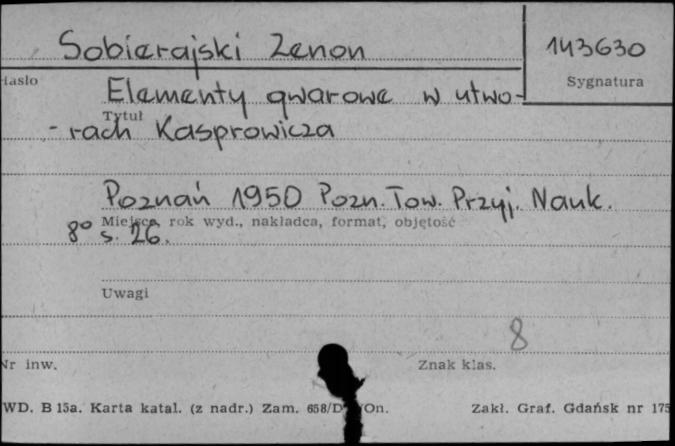 Sobierajski Zenon
143630
Hasło
Sygnatura
Elementy gwarowe w utwo-
Tytuł
- rach Kasprowicza
Poznań 1950 Pozn. Tow. Przyj. Nauk.
Miejsce, rok wyd., nakładca, format, objętość
8° s. 26.
Uwagi
8
Nr inw.
Znak klas.
WD. B 15a. Karta katal. (z nadr.) Zam. 658/D /On.
Zakł. Graf. Gdańsk nr 175